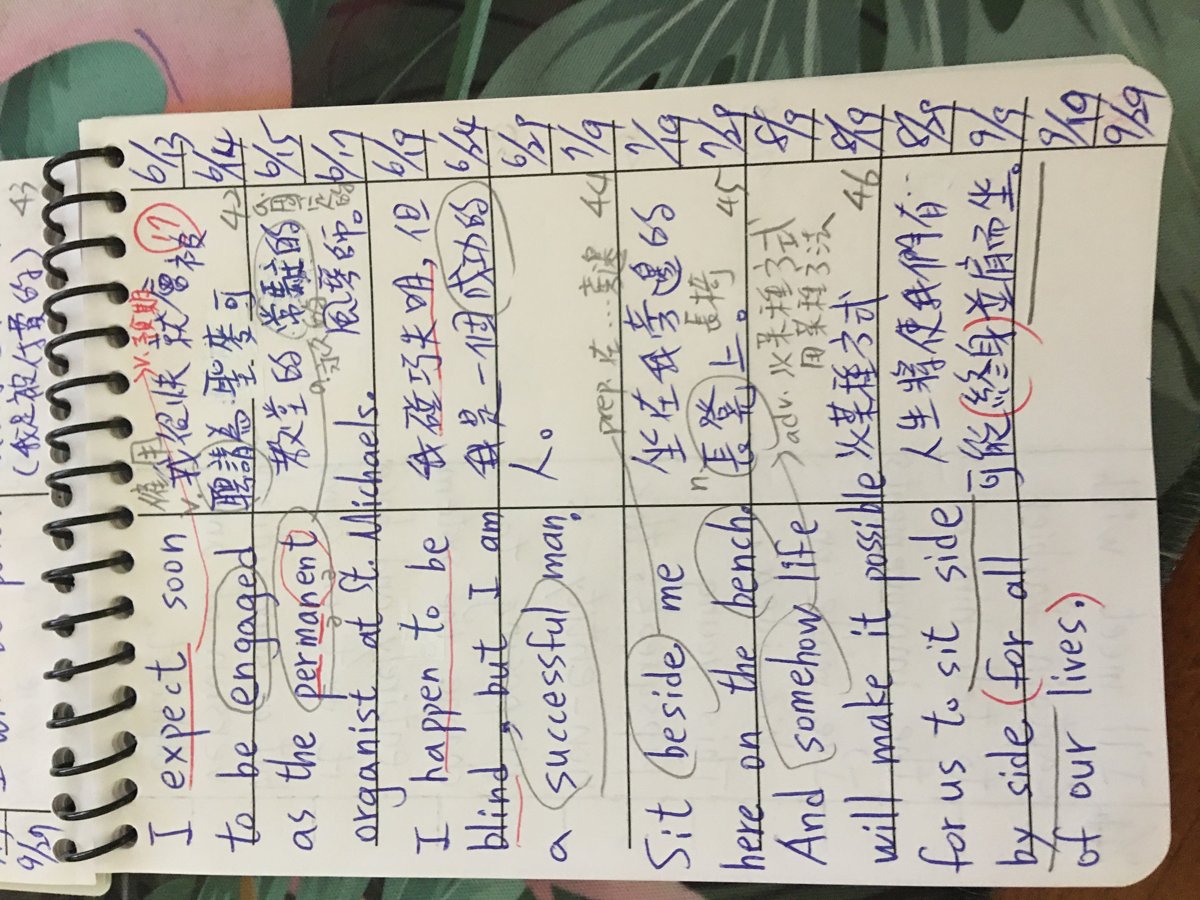 (我是被付費的) 43
9/29
v. 預期 17
僱用
I expect soon 我很快就會被 6/13
to be engaged 聘請為聖麥可 42 6/14
as the permanent 教堂的常駐的 6/15
a. 永久的 固定的
organist at St. Michaels. 風琴師。 6/17
I happen to be 我碰巧失明,但 6/19
blind, but I am 我是一個成功的 6/24
a successful man. 人。 6/29
prep. 在…旁邊 44 7/9
Sit beside me 坐在我旁邊的 7/19
n 長椅
here on the bench. 長凳上。 45 7/29
adv. 以某種方式 8/9
用某種方法
And somehow life
will make it possible 以某種方式 46 8/19
for us to sit side 人生將使我們有 8/29
by side (for all 可能(終身)並肩而坐。 9/9
of our lives.) 9/19
9/29